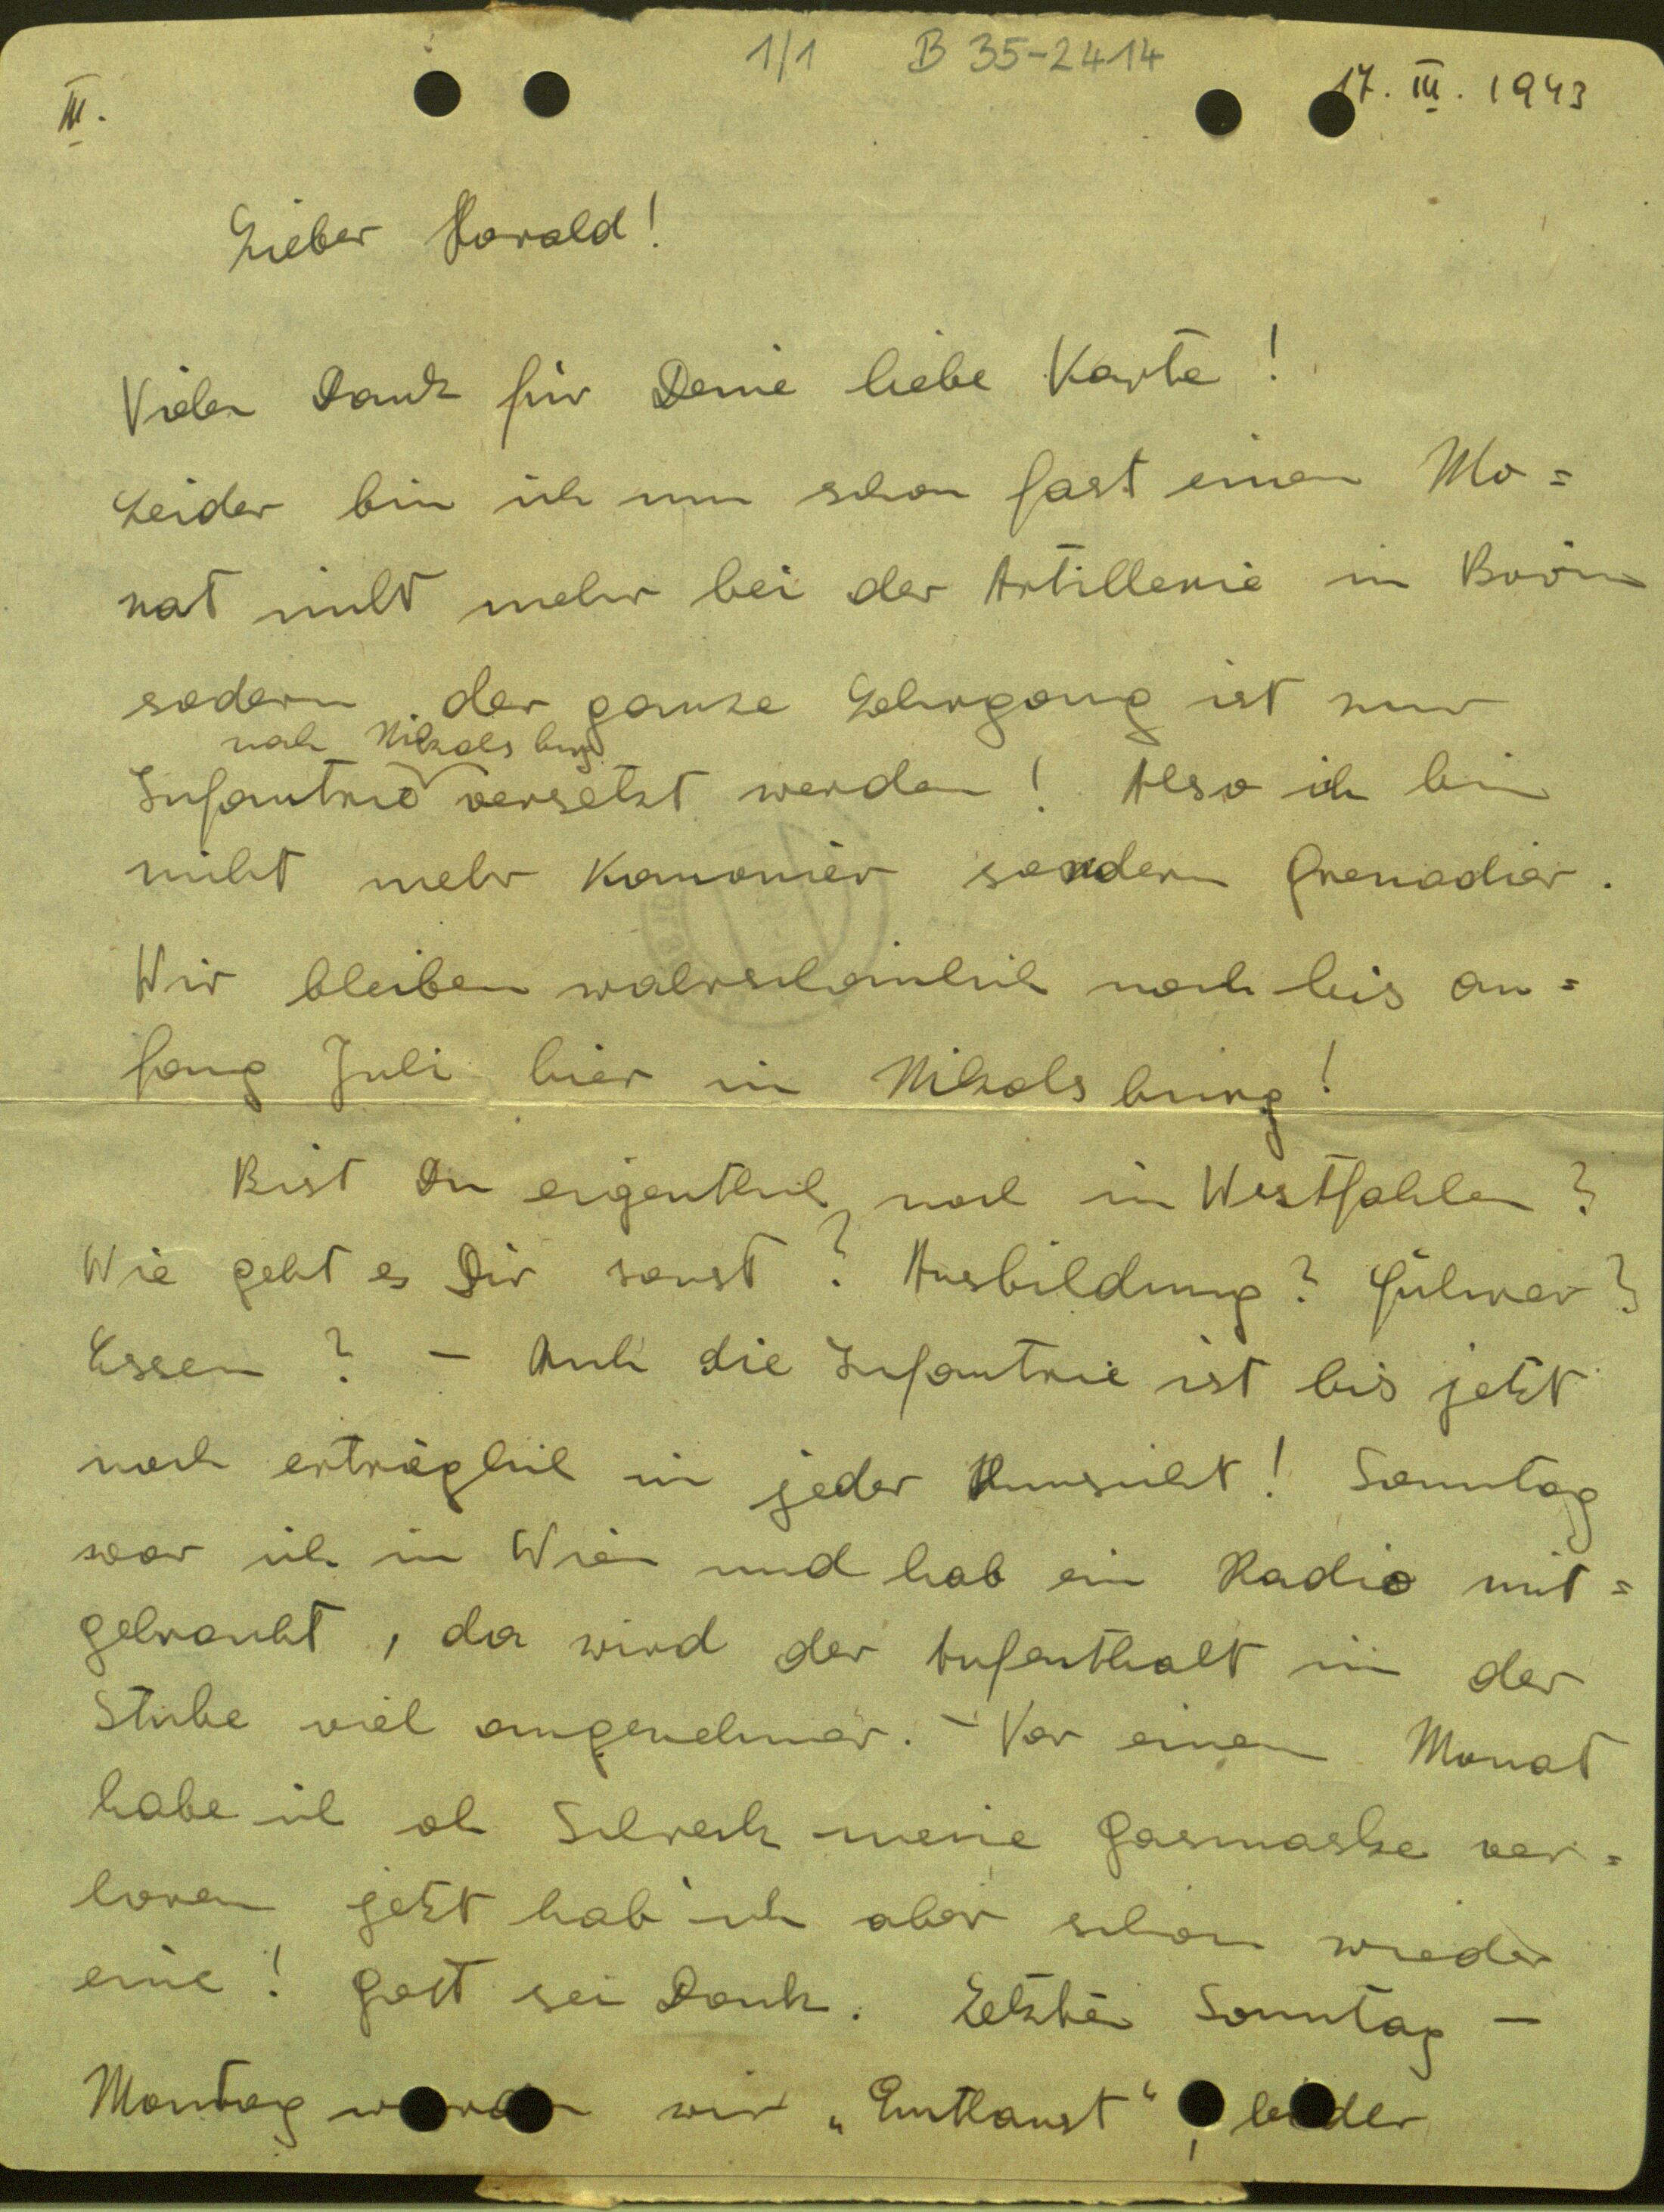 1/1 B 35-2414
III. 17. III. 1943
Lieber Harald!
Vielen Dank für Deine liebe Karte!
Leider bin ich nun schon fast einen Mo=
nat nicht mehr bei der Artillerie in Brünn
sodern der ganze Lehrgang ist zur
nach Nikolsburg
Infantrie versetzt werden! Also ich bin
nicht mehr Kanonier sondern Grenadier.
Wir bleiben wahrscheinlich noch bis an=
fang Juli hier in Nikolsburg!
Bist Du eigentlich noch in Westfahlen?
Wie geht es Dir sonst? Ausbildung? Führer?
Essen? – Auch die Infantrie ist bis jetzt
noch erträglich in jeder Hinsicht! Sonntag
war ich in Wien und hab ein Radio mit=
gebracht, da wird der Aufenthalt in der
Stube viel angenehmer. – Vor einem Monat
habe ich oh Schreck meine Gasmaske ver=
loren jetzt hab ich aber schon wieder
eine! Gott sei Dank. Letzten Sonntag –
Montag wurden wir „Entlaust“, leider